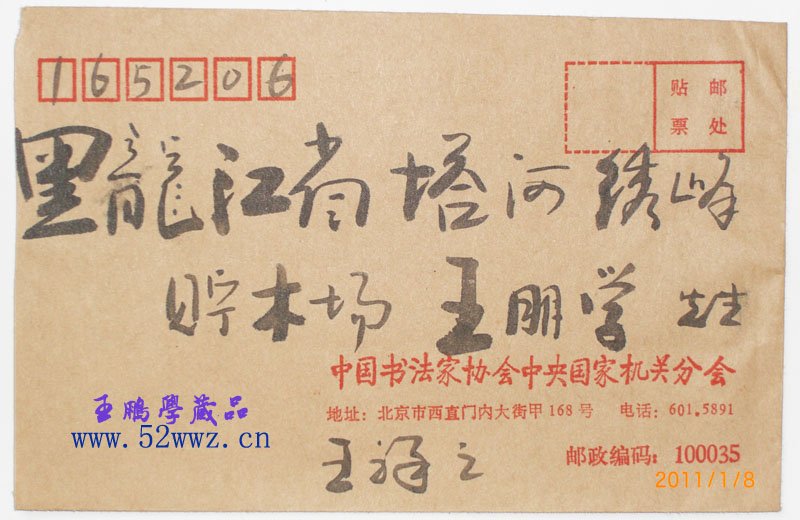 165206
贴 邮
票 处
黑龍江省塔河绣峰
贮木场 王朋学 先生
中国书法家协会中央国家机关分会
王鵬學藏品
地址：北京市西直门内大街甲168号 电话：601.5891
www.52wwz.cn
王祥之
邮政编码：100035
2011/1/8